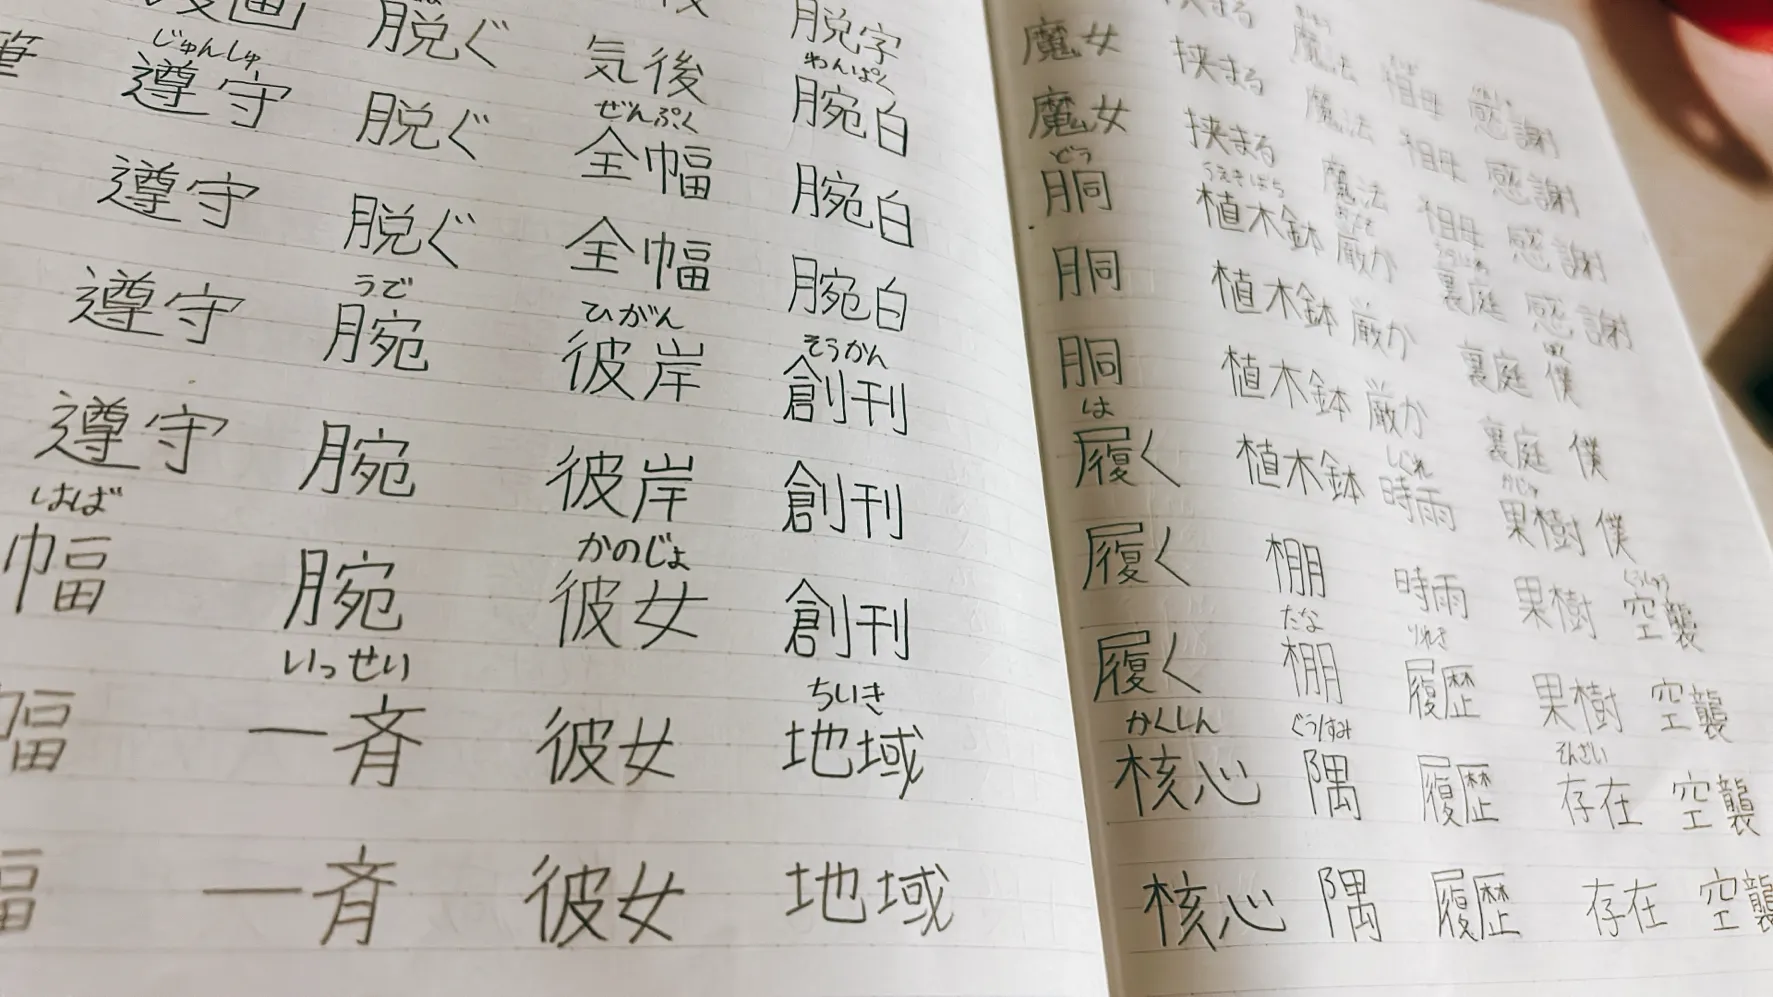 漫画
じゅんしゅ
遵守
遵守
遵守
遵守
はば
幅
幅
幅
脱ぐ
脱ぐ
脱ぐ
うで
腕
腕
腕
いっせい
一斉
一斉
気後
ぜんぷく
全幅
全幅
ひがん
彼岸
彼岸
かのじょ
彼女
彼女
彼女
脱字
わんぱく
腕白
腕白
腕白
そうかん
創刊
創刊
創刊
ちいき
地域
地域
魔女
魔女
どう
胴
胴
胴
は
履く
履く
履く
かくしん
核心
核心
挟まる
挟まる
挟まる
うえきばち
植木鉢
植木鉢
植木鉢
植木鉢
棚
たな
棚
ぐう/すみ
隅
隅
魔法
魔法
魔法
厳か
厳か
厳か
しぐれ
時雨
時雨
りれき
履歴
履歴
履歴
祖母
祖母
祖母
裏庭
裏庭
裏庭
かじゅ
果樹
果樹
果樹
そんざい
存在
存在
感謝
感謝
感謝
感謝
僕
僕
僕
空襲
空襲
空襲
空襲